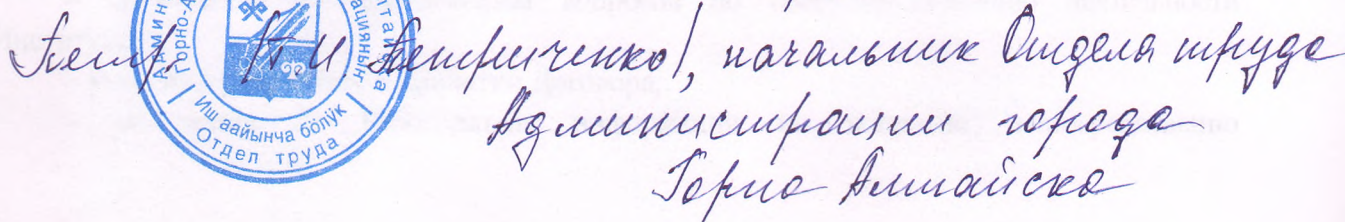 Петр. /Т.И. Петриченко/, начальник Отдела труда
Администрации города
Горно Алтайска
Иш аайынча бöлÿк
Отдел труда